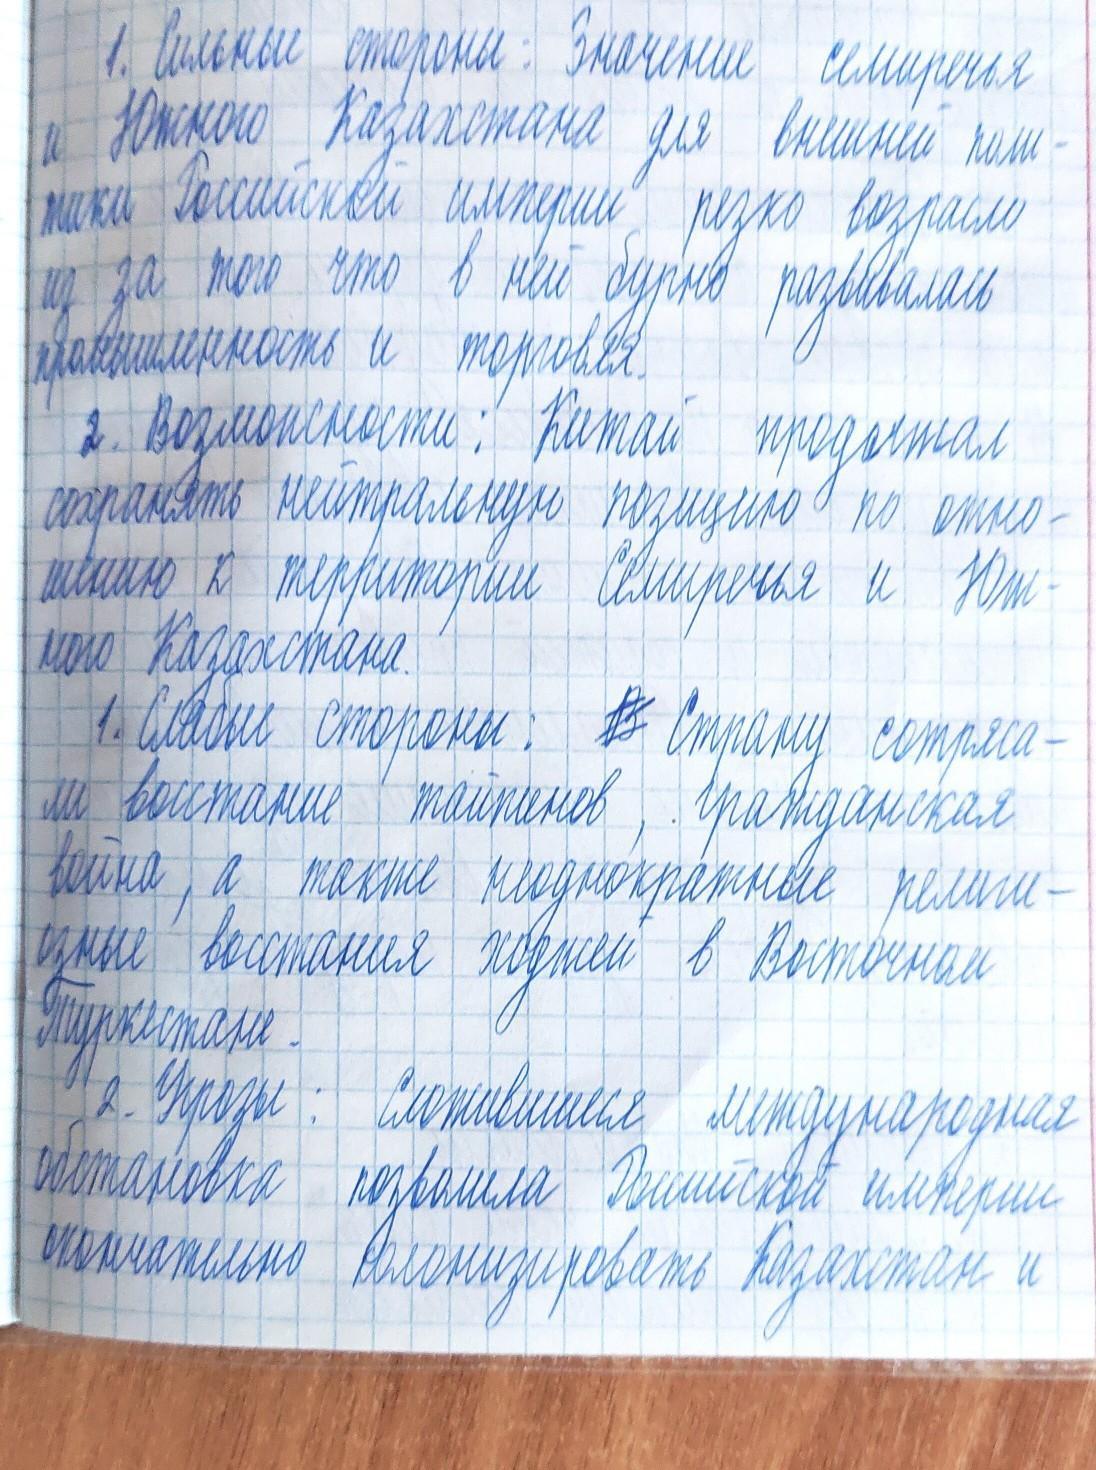 1. Сильные стороны: Значение семиречья
и Южного Казахстана для внешней поли-
тики Российской империи резко возрасло
из за того что в ней бурно развивалась
промышленность и торговля.
2. Возможности: Китай продолжал
сохранять нейтральную позицию по отно-
шению к территории Семиречья и Юж-
ного Казахстана.
1. Слабые стороны: Страну сотряса-
ли восстание тайпинов, гражданская
война, а также неоднократные религи-
озные восстания ходжей в Восточном
Туркестане.
2. Угрозы: Сложившиеся международная
обстановка позволила Российской империи
окончательно колонизировать Казахстан и